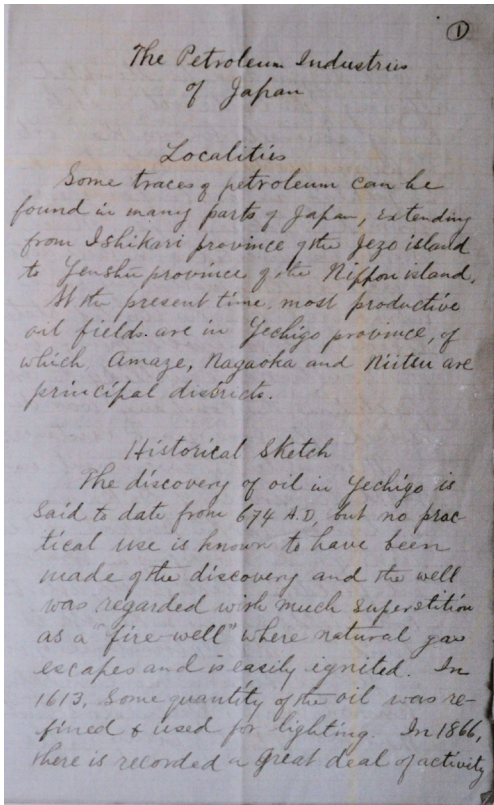 1
The Petroleum Industries
of Japan
Localities
Some traces of petroleum can be
found in many parts of Japan, extending
from Ishikari province of the Jezo island
to Yenshu province of the Nippon island.
At the present time, most productive
oil fields are in Yechigo province, of
which, Amaze, Nagaoka and Niitsu are
principal districts.
Historical Sketch
The discovery of oil in Yechigo is
said to date from 674 A.D, but no prac-
tical use is known to have been
made of the discovery and the well
was regarded with much superstition
as a "fire-well" where natural gas
escapes and is easily ignited. In
1613, some quantity of the oil was re-
fined & used for lighting. In 1866,
there is recorded a great deal of activity